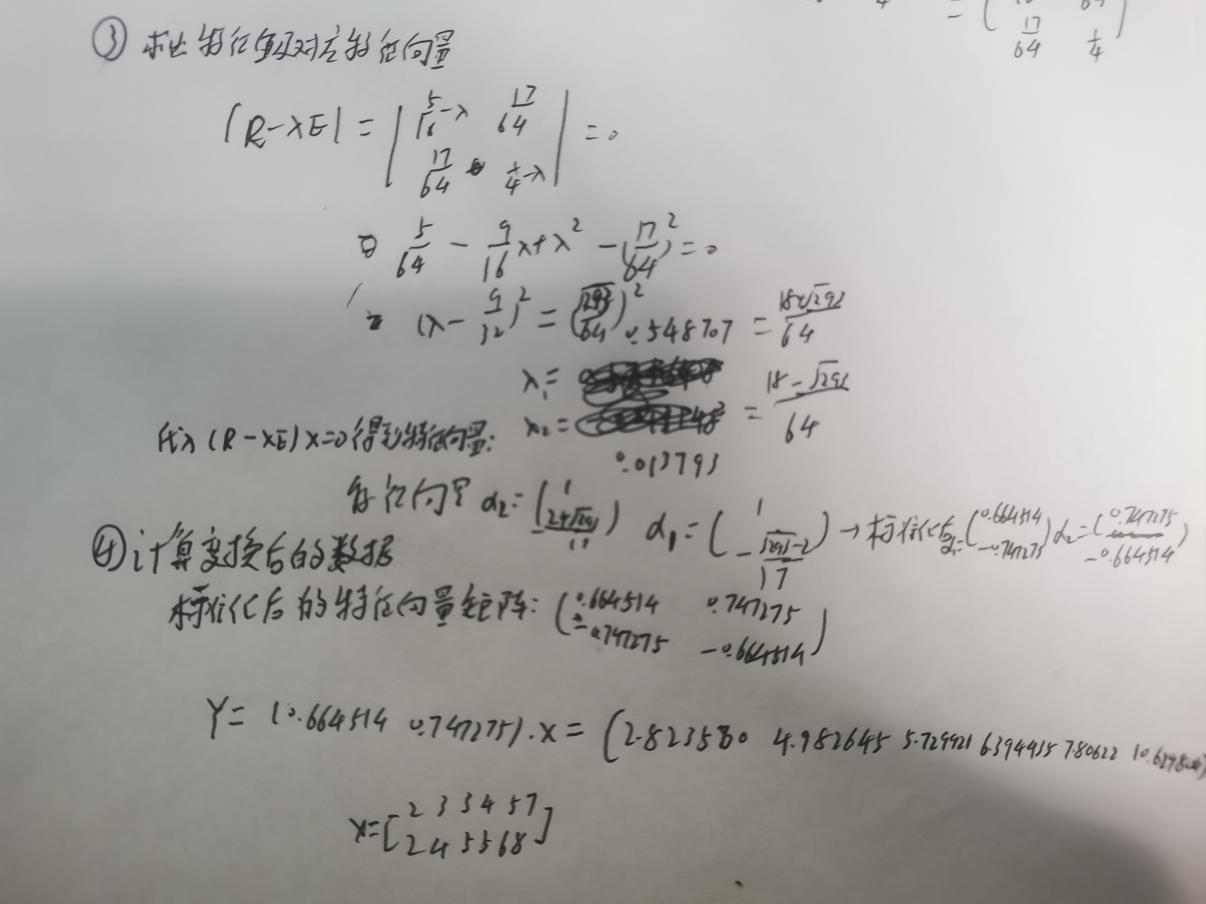 = ( 17/64 1/4 )
③ 求出特征值及对应特征向量
|R-λE| = | 5/16-λ 17/64 | = 0
| 17/64 1/4-λ |
5/64 - 9/16 λ + λ² - (17/64)² = 0
(λ - 9/32)² = (√293/64)²
λ₁ = 0.548707 = (18+√293)/64
λ₂ = 0.013793 = (18-√293)/64
代入 (R-λE)x=0 得到特征向量:
特征向量 α₂= α₁= → 标准化后 α₁=(0.664514 -0.747275) α₂=(0.747275 -0.664514)
④ 计算变换后的数据
标准化后的特征向量矩阵: (0.664514 0.747275
-0.747275 -0.664514)
Y= (0.664514 0.747275)·X = (2.823580 4.982645 5.729921 6.394435 7.80622
X=[ 2 3 3 4 5 7
2 4 5 5 6 8 ]